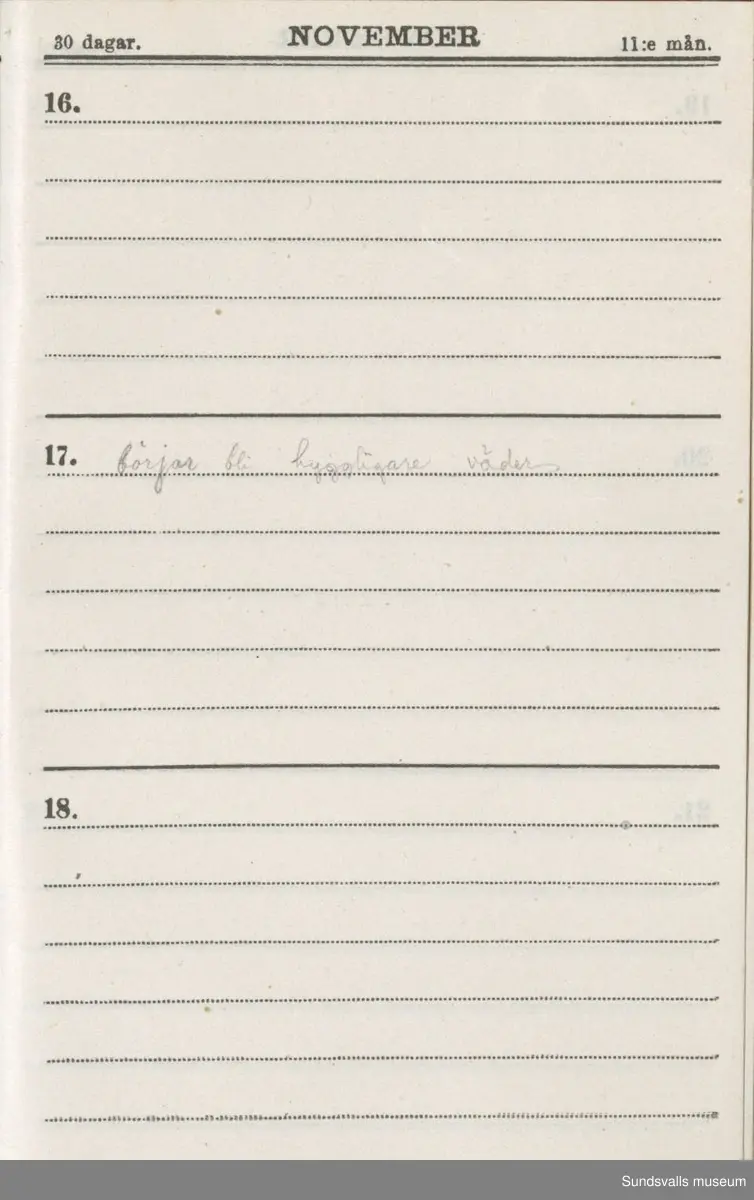 30 dagar. NOVEMBER 11:e mån.
16.
17. börjar bli hyggligare väder
18.
Sundsvalls museum